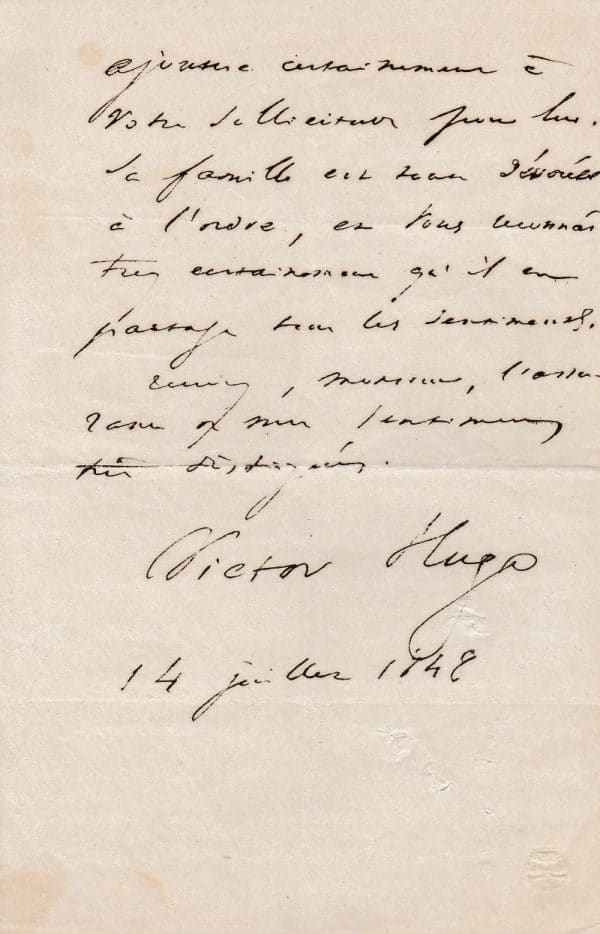 ajoutera certainement à
votre sollicitude pour lui.
Sa famille est toute dévouée
à l'ordre, et vous reconnaî
trez certainement qu'il en
partage tous les sentiments.
Recevez, monsieur, l'assu-
rance de mes sentiments
très distingués.
Victor Hugo
14 juillet 1848